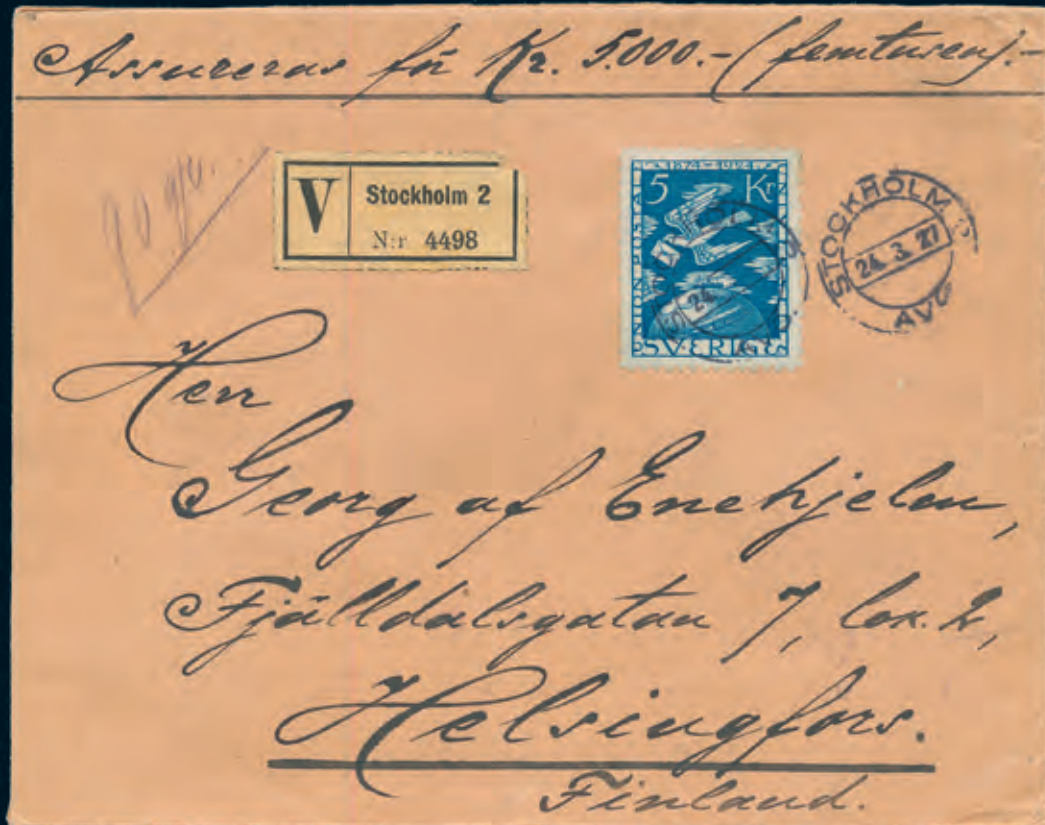 Assureras för Kr. 5.000.- (femtusen).-
20 gr.
V Stockholm 2
N:r 4498
1874-1924
5 Kr
SVERIGE
STOCKHOLM 2
24. 3. 27
AVG
Herr
Georg af Enehjelm,
Fjälldalsgatan 7, lok. 2,
Helsingfors.
Finland.